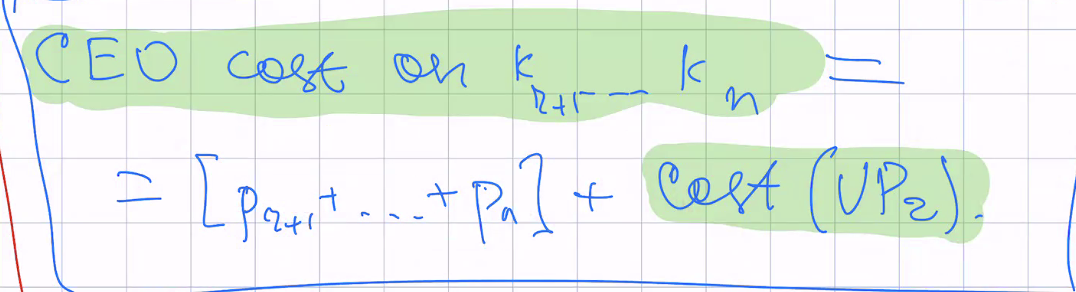 CEO cost on k_{r+1} --- k_n =
= [p_{r+1} + .... + p_n] + cost (VP_2).